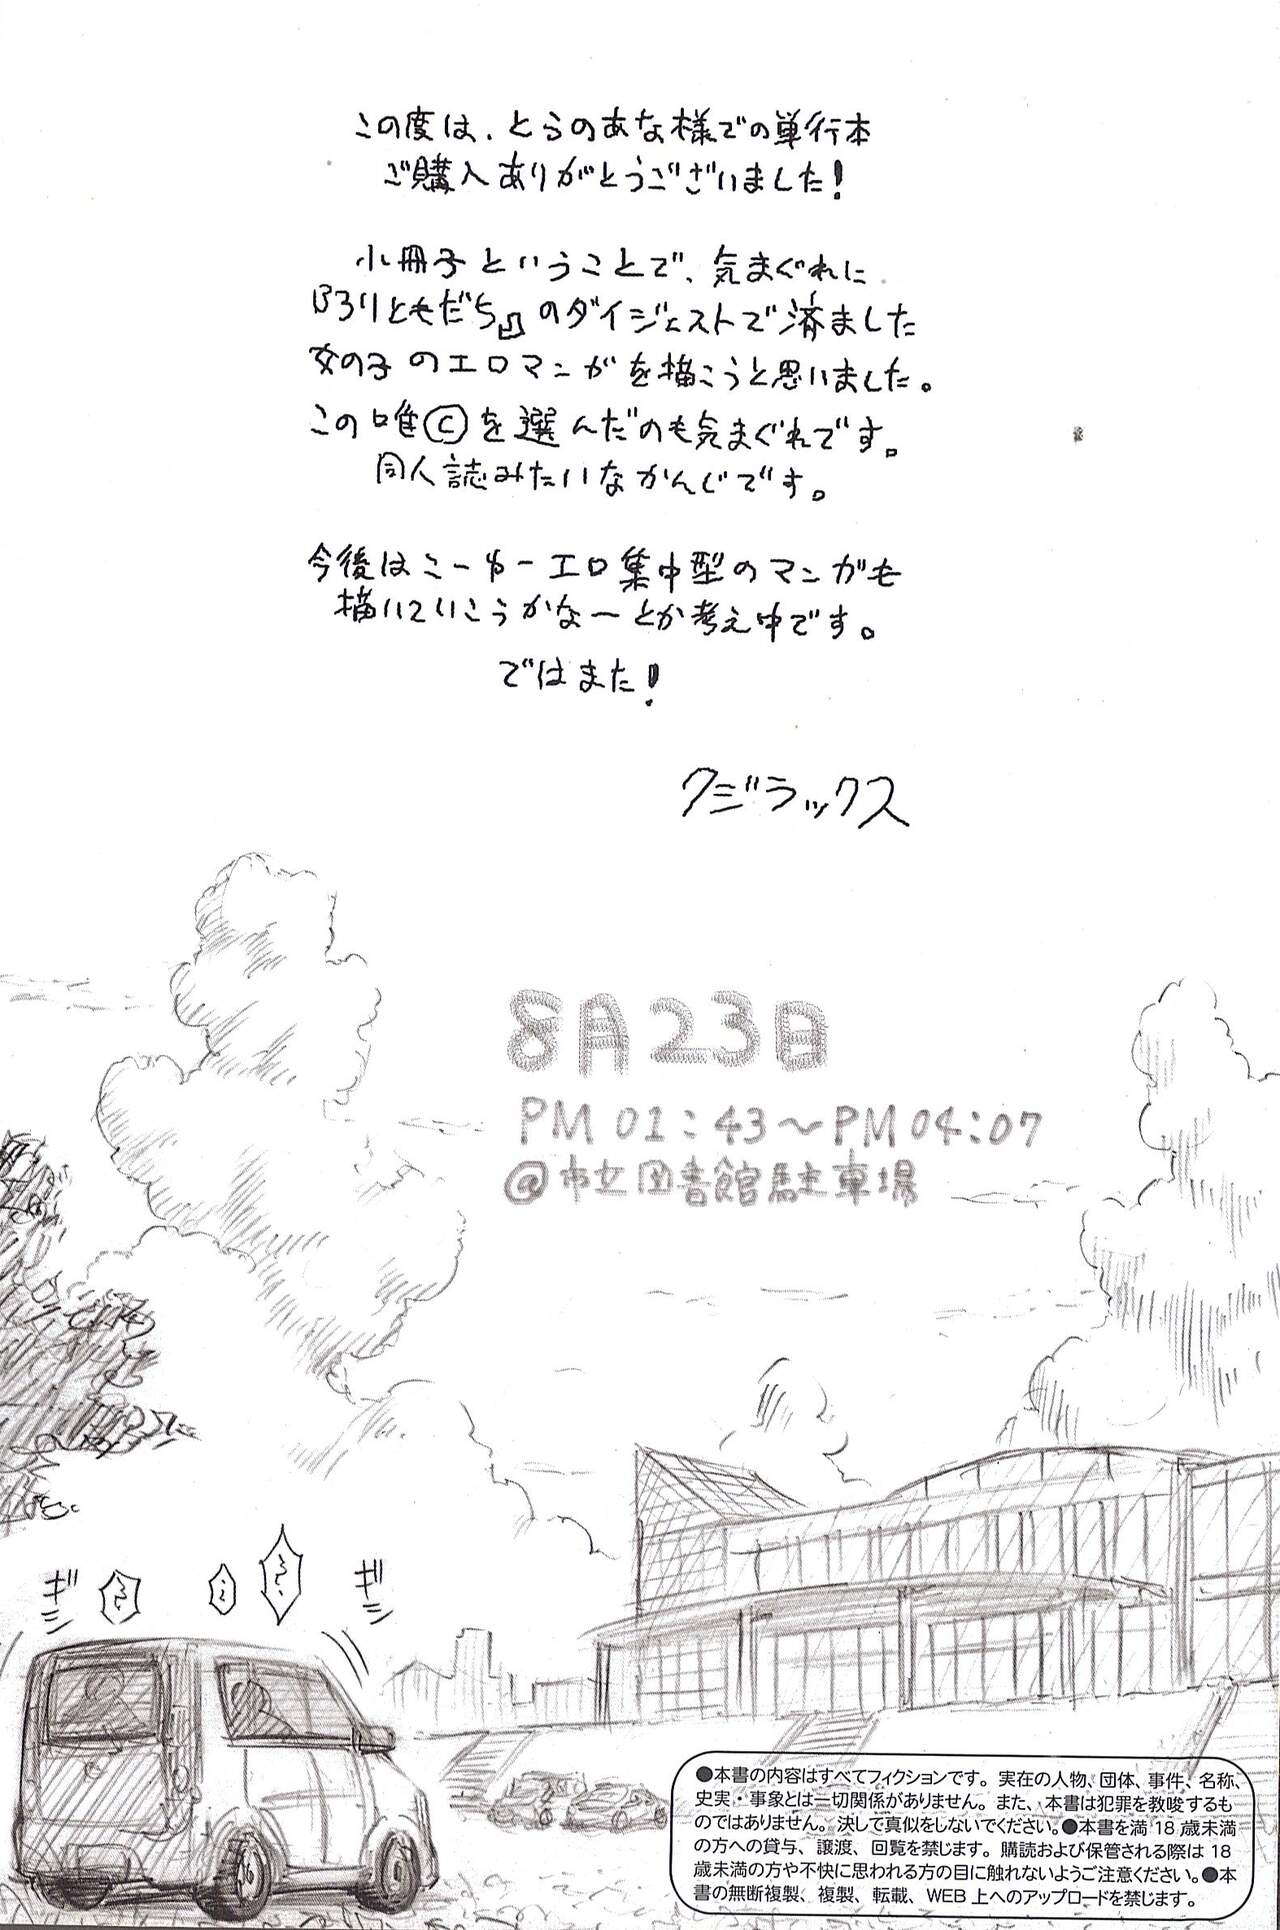 この度は、とらのあな様での単行本
ご購入ありがとうございました!
小冊子ということで、気まぐれに
『ろりともだち』のダイジェストで済ました
女の子のエロマンガを描こうと思いました。
この唯©を選んだのも気まぐれです。
同人誌みたいなかんじです。
今後はこーゆーエロ集中型のマンガも
描いていこうかな〜とか考え中です。
ではまた!
クジラックス
8月23日
PM 01:43〜PM 04:07
@市立図書館駐車場
ギシ
ギシ
●本書の内容はすべてフィクションです。実在の人物、団体、事件、名称、
史実・事象とは一切関係がありません。また、本書は犯罪を教唆するも
のではありません。決して真似をしないでください。●本書を満18歳未満
の方への貸与、譲渡、回覧を禁じます。購読および保管される際は18
歳未満の方や不快に思われる方の目に触れないようご注意ください。●本
書の無断複製、複製、転載、WEB上へのアップロードを禁じます。